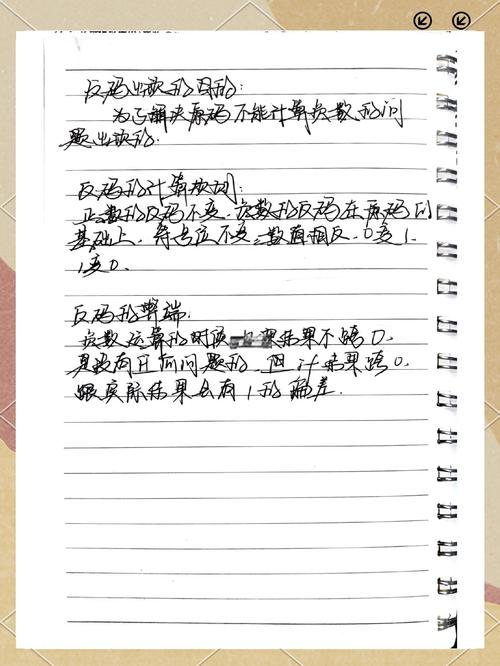 反码出现的目的:
为了解决原码不能计算负数的问
题出现的.
反码的计算规则:
正数的反码不变.负数的反码在原码的
基础上.符号位不变.数值相反.0变1.
1变0.
反码的弊端.
负数运算的时候 如果结果不跨0.
是没有任何问题的.但计结果跨0.
跟实际结果会有1的偏差.